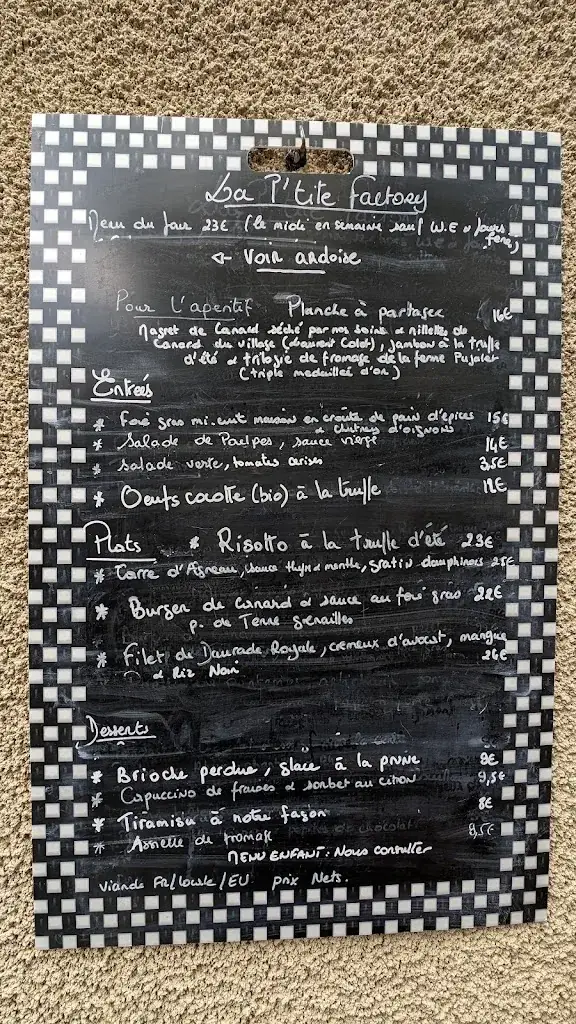 La P'tite factory
Menu du Jour 23€ (le midi en semaine sauf W.E & Jours
fériés)
Voir ardoise
Pour L'aperitif Planche à partager 16€
Magret de Canard séché par nos soins & rillettes de
Canard du village (Laurent Colot), jambon à la truffe
d'été & trilogie de fromage de la ferme Pujalet
(triple medailles d'or)
Entrées
* Foie gras mi-cuit maison en croûte de pain d'épices 15€
& chutney d'oignons
* Salade de Poulpes, sauce vierge 14€
* Salade verte, tomates cerises 3.5€
* Oeufs cocotte (bio) à la truffe 12€
Plats * Risotto à la truffe d'été 23€
* Carré d'Agneau, sauce thym & menthe, gratin dauphinois 25€
* Burger de Canard & sauce au foie gras 22€
p. de Terre grenailles
* Filet de Daurade Royale, crémeux d'avocat, mangue
& Riz Noir 26€
Desserts
* Brioche perdue, glace à la prune 9€
* Capuccino de fraises & sorbet au citron 9,5€
* Tiramisu à notre façon 8€
* Assiette de fromage 9,5€
MENU ENFANT : Nous consulter
Viande FR/ /EU prix Nets.